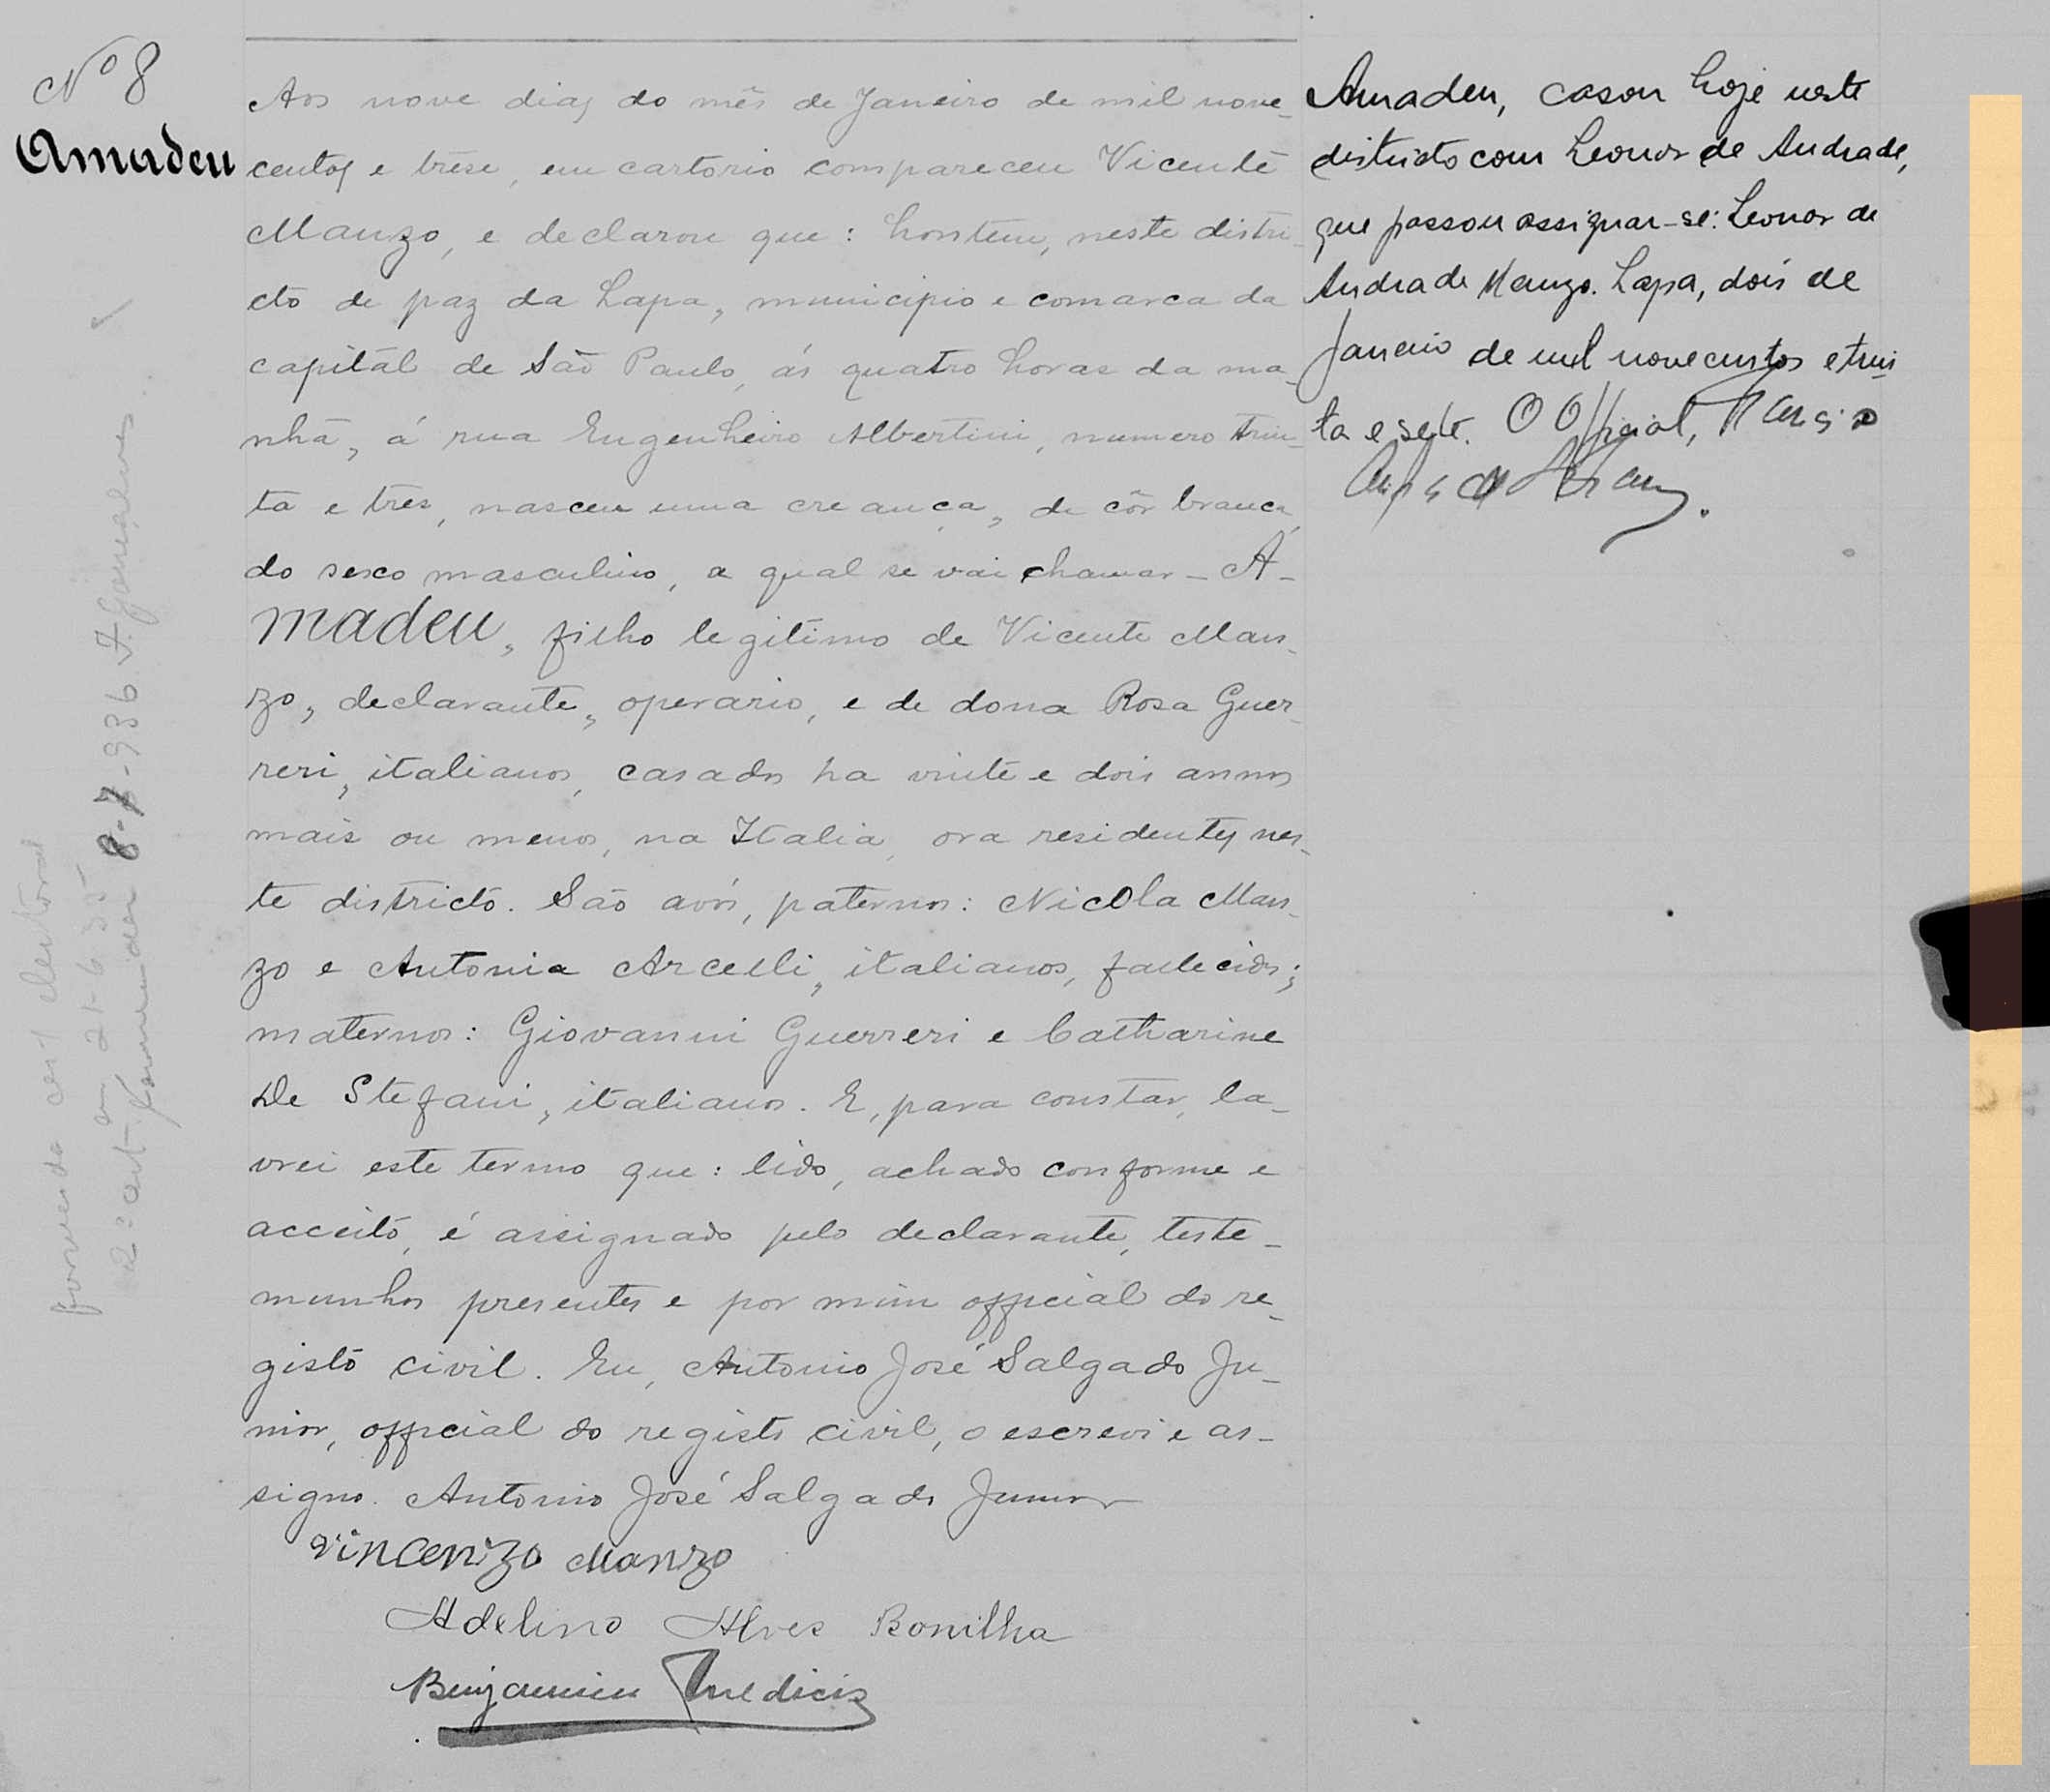 Nº 8
Amadeu
Aos nove dias do mês de Janeiro de mil nove-
centos e trese, em cartorio compareceu Vicente
Manzo, e declarou que: hontem, neste distri-
cto de paz da Lapa, municipio e comarca da
capital de São Paulo, ás quatro horas da ma-
nhã, á rua Engenheiro Albertini, numero trin-
ta e tres, nasceu uma creança, de côr branca,
do sexo masculino, a qual se vai chamar - A-
madeu, filho legitimo de Vicente Man-
zo, declarante, operario, e de dona Rosa Guer-
reri, italianos, casados ha vinte e dois annos
mais ou menos, na Italia, ora residentes nes-
te districto. São avós, paternos: Nicola Man-
zo e Antonia Arcelli, italianos, fallecidos;
maternos: Giovanni Guerreri e Catharine
De Stefani, italianos. E, para constar, la-
vrei este termo que: lido, achado conforme e
acceito, é assignado pelo declarante, teste-
munhas presentes e por mim official do re-
gisto civil. Eu, Antonio José Salgado Ju-
nior, official do registo civil, o escrevi e as-
signo. Antonio José Salgado Junior
Vincenzo Manzo
Adelino Alves Bonilha
Benjamin Medicis
Amadeu, casou hoje neste
districto com Leonor de Andrade,
que passou assignar-se: Leonor de
Andrade Manzo. Lapa, dois de
Janeiro de mil novecentos e trin-
ta e sete. O Official,
em 21-6-35
2ª cert. 8-7-936